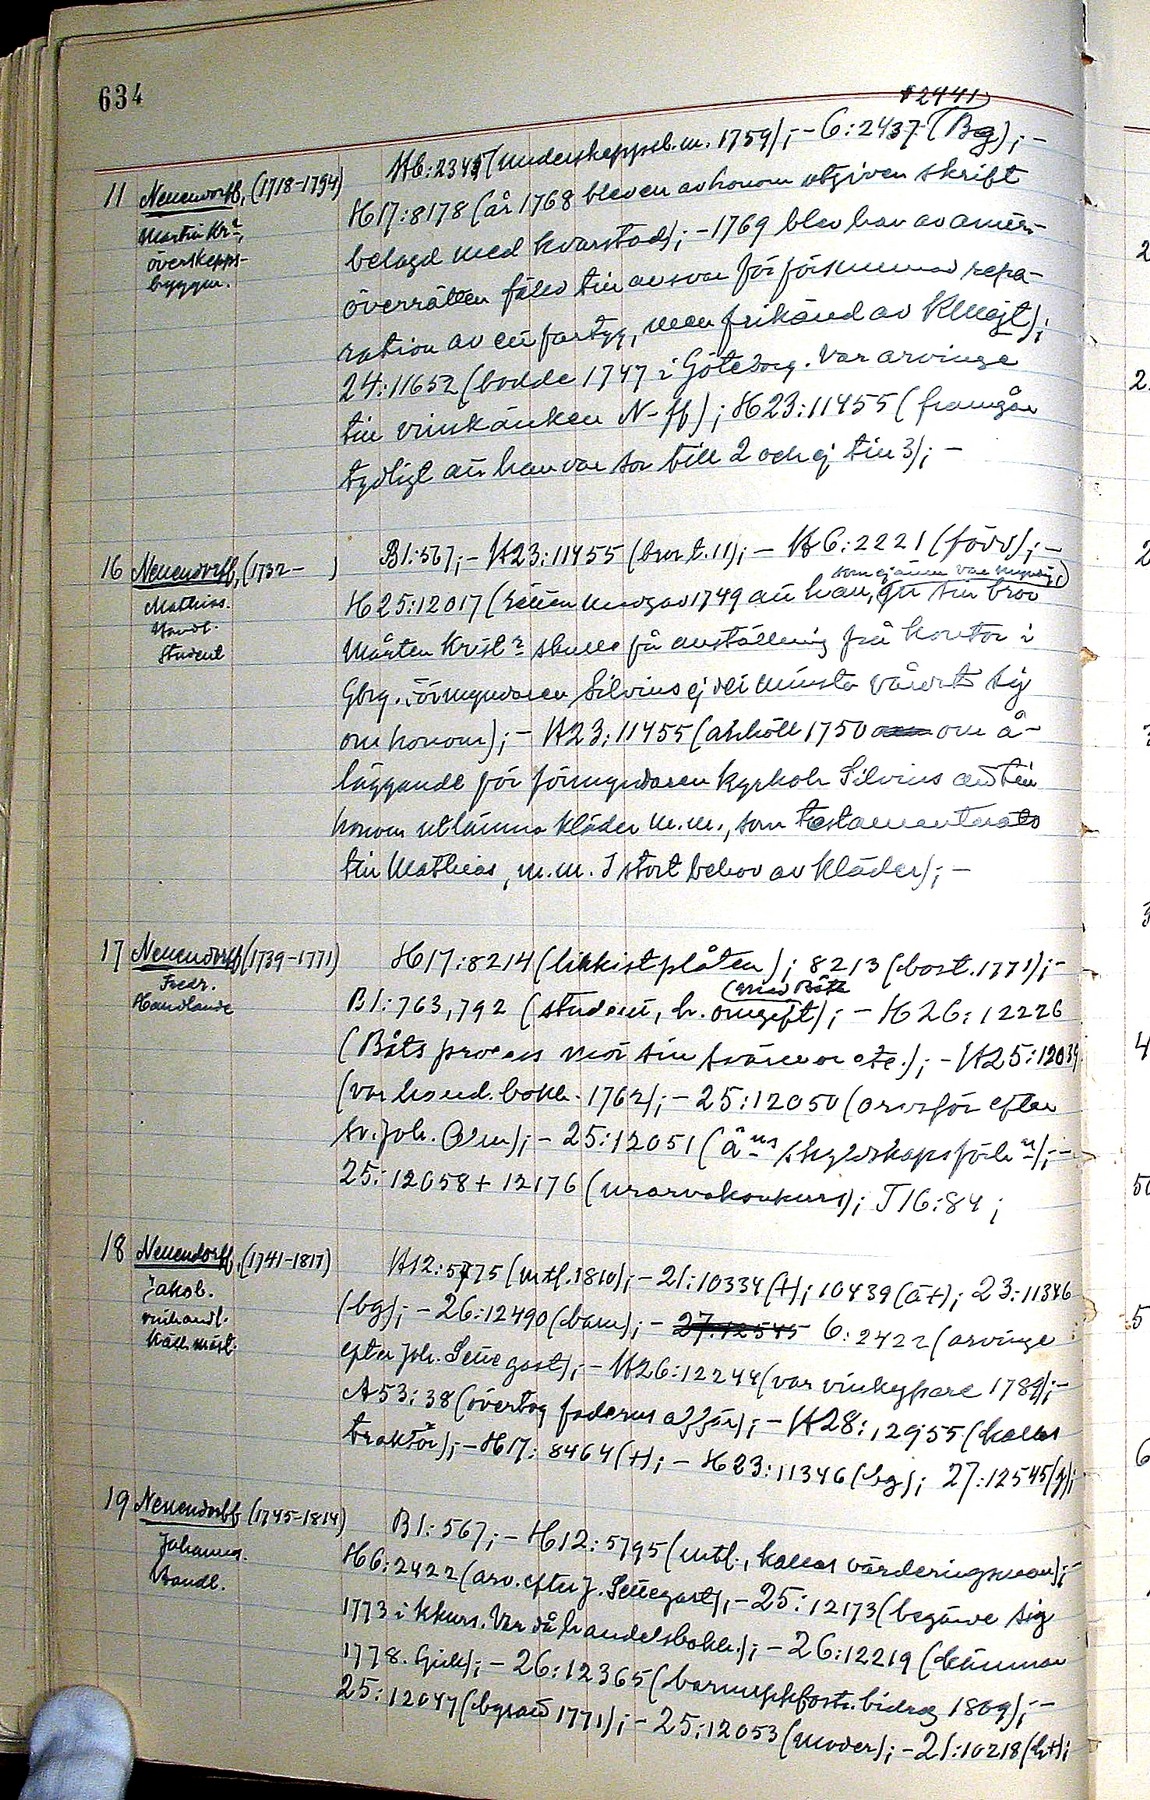 634
+2441)
11 Neuendorff, (1718-1794)
Martin Kr:,
överskepps-
byggm.
H6:2345 (underskeppsb.m. 1759); - 6:2437 (Bg); -
H17:8178 (år 1768 bleven av honom utgiven skrift
belagd med kvarstad); - 1769 blev han av amir-
överrätten fälld till ansvar för försummad repa-
ration av ett fartyg, men frikänd av KMajt);
24:11652 (bodde 1747 i Göteborg. Var arvinge
till vinskänken N-ff); H23:11455 (framgår
tydligt att han var son till 2 och ej till 3); -
16 Neuendorff, (1732- )
Mathias.
Handl.
Student
B1:567; - H23:11455 (bror t. 11); - H6:2221 (född); -
som ej ännu var myndig)
H25:12017 ( 1749 att han, sin bror
Mårten Krist:r skulle få anställning på kontor i
Gbrg. Förmyndaren Silvius ej det minsta vårdat sig
om honom); - H23:11455 (anhöll 1750 om å-
läggande för förmyndaren kyrkoh Silvius att till
honom utlämna kläder m.m., som testamenterats
till Mathias, m.m. I stort behov av kläder); -
17 Neuendorff (1739-1771)
Fredr.
Handlande
H17:8214 (likkistplåten); 8213 (bort. 1771); -
(med Båth
B1:763,792 (student, h. omgift); - H26:12226
(Båts process mot sin svärmor etc.); - H25:12039
(var hand. bokh. 1762); - 25:12050 (arvsför efter
sv. Joh. ); - 25:12051 (ä:ns skyldskapsförh:n); -
25:12058 + 12176 (urarvakonkurs); J16:84;
18 Neuendorff, (1741-1817)
Jakob.
vinhandl.
källmäst.
H12:5775 (mtl. 1810); - 21:10334 (+); 10439 (ä+); 23:11346
(bg); - 26:12490 (barn); - 27:12545 6:2422 (arvinge
efter Joh. Settegast); - H26:12244 (var vinkypare 1789); -
A53:38 (övertog faderns affär); - H28:12955 (kallas
traktör); - H17:8464 (+); - H23:11346 (bg); 27:12545 (g);
19 Neuendorff (1745-1814)
Johannes.
Handl.
B1:567; - H12:5795 (mtl., kallas värderingsman); -
H6:2422 (arv. efter J. Settegast); - 25:12173 (begärde sig
1773 i kkurs. Var då handelsbokh.); - 26:12219 (kämnär
1778. Gick); - 26:12365 (barnuppfostr. bidrag 1809); -
25:12047 (bgrad 1771); - 25:12053 (moder); - 21:10218 (h+);